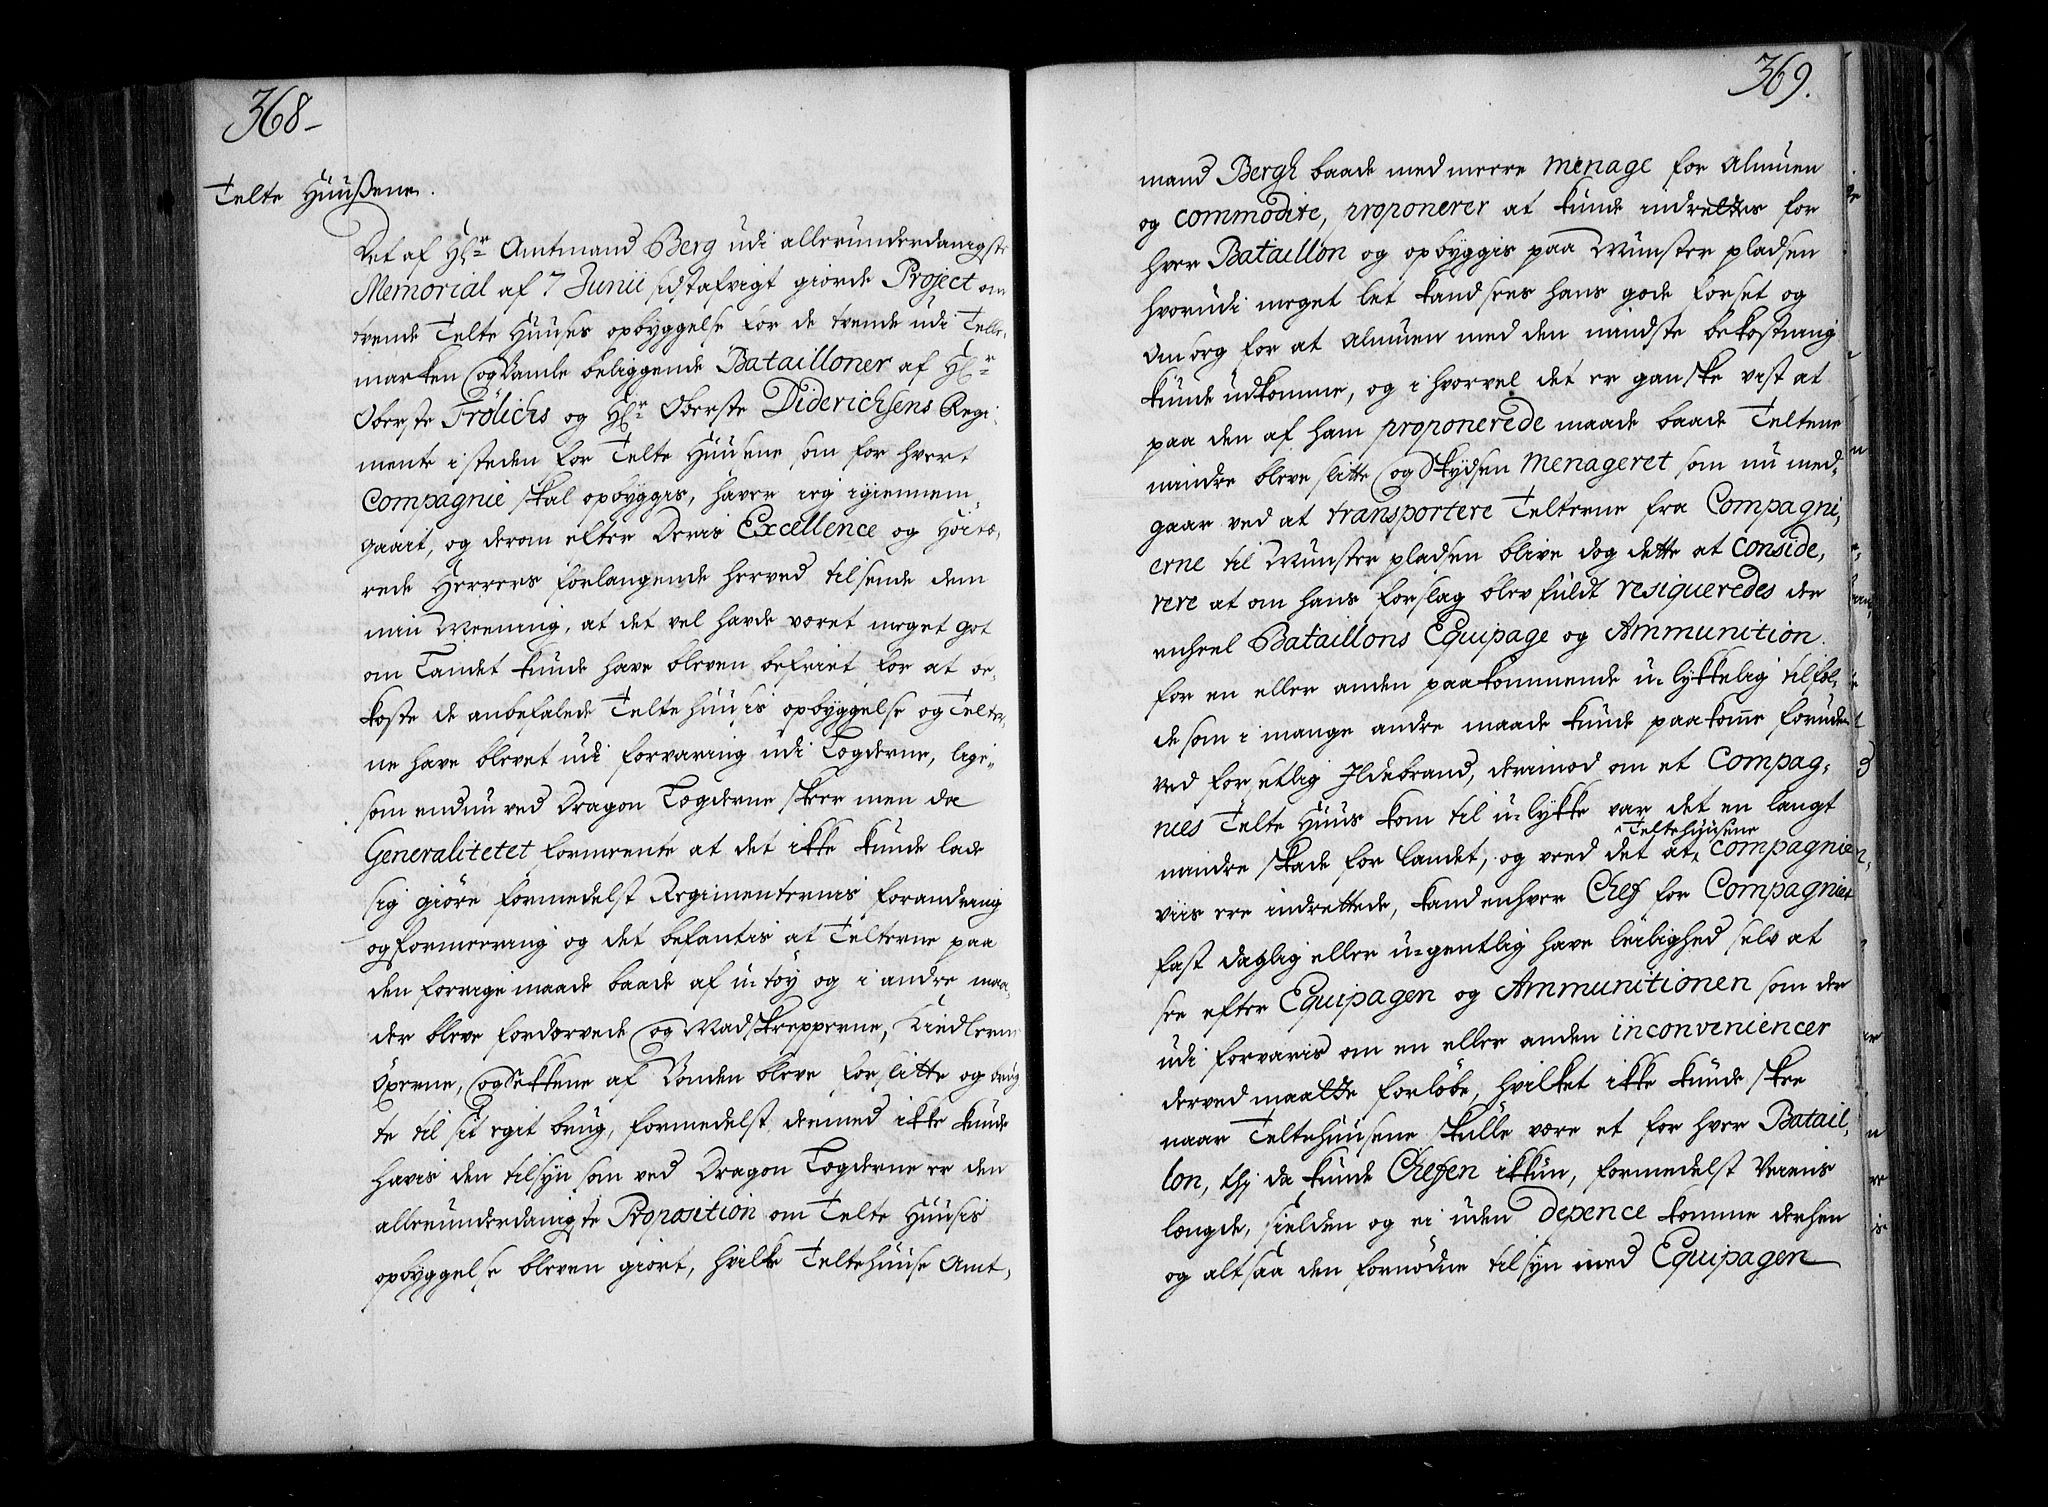 368-
Telte Huußene.
Det af Hr. Amtmand Berg udi allerunderdanigste
Memorial af 7 Junii sidstafvigt giorde Project om
trende Telte Huuses opbyggelse for de trende udi Telle-
marken og Bamle beliggende Batailloner af Hr.
Oberste Frölichs og Hr. Oberste Diderichsens Regi-
mente i steden for Telte Huusene som for hvert
Compagnie skal opbyggis, haver ieg igiennem-
gaait, og derom efter Deris Excellence og Höiæ-
rede Herrers forlangende herved tilsende dem
min Meening, at det vel hafde været meget got
om Landet kunde have bleven befriet for at be-
koste de anbefalede Telte huusis opbyggelse og Telter-
ne have blevet udi forvaring udi Legderne, lige-
som endnu ved Dragon Legderne skeer men da
Generalitetet formeente at det ikke kunde lade
sig giöre formedelst Regimenternis forandring
og formeering og det befantis at Telterne paa
den forrige maade baade af u-töy og i andre maa-
der bleve fordervede og Madskrepperne, Kiedlerne
Öxerne, og Sekkene af Bonden bleve forslitte og brug-
te til sit eget brug, formedelst dermed ikke kunde
havis den tilsyn som ved Dragon Legderne er den
allerunderdanigste Proposition om Telte Huusis
opbyggelse bleven giort, hvilke Teltehuuse Amt-
369.
mand Bergh baade med meere menage for Almuen
og commodite, proponerer at kunde indrettes for
hver Bataillon og opbyggis paa Munster pladsen
hvorudi meget let kand sees hans gode forset og
Omsorg for at Almuen med den mindste bekostning
kunde udkomme, og i hvorvel det er ganske vist at
paa den af ham proponerede maade baade Teltene
mindre bleve slitte og Skydsen menageret som nu med-
gaar ved at transportere Telterne fra Compagni-
erne til Munster pladsen blive dog dette at conside-
rere at om hans forslag blev fuldt resiqueredes der
enheel Bataillons Equipage og Ammunition
for en eller anden paakommende u-lykkelig tilfel-
de som i mange andre maade kunde paakomme foruden
ved forsetlig Ildebrand, derimod om et Compag-
nies Telte Huus kom til u-lykke var det en langt
mindre skade for Landet, og veed det at Teltehuusene compagnie
viis ere indrettede, kand enhver Chef for Compagniet
fast daglig eller u-gentlig have leilighed selv at
see efter Equipagen og Ammunitionen som der
udi forvaris om en eller anden inconveniencer
derved maatte forlöbe, hvilket ikke kunde skee
naar Teltehuusene skulle være et for hver Batail-
lon, thj da kunde Chefen ikkun, formedelst Veiens
længde, sielden og ei uden depence komme derhen
og altsaa den fornödne tilsyn med Equipagen